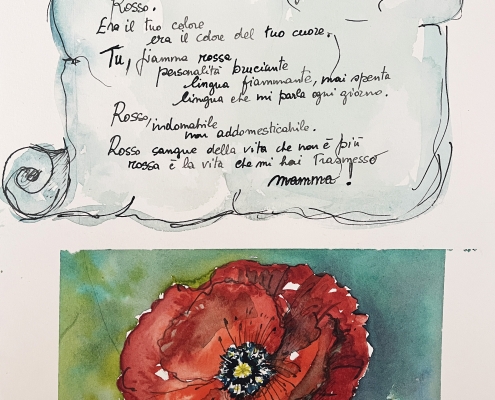 Rosso.
Era il tuo colore
era il colore del tuo cuore.
Tu, fiamma rossa
personalità bruciante
lingua fiammante, mai spenta
lingua che mi parla ogni giorno.
Rosso, indomabile
non addomesticabile.
Rosso sangue della vita che non è più
rossa è la vita che mi hai trasmesso
mamma!